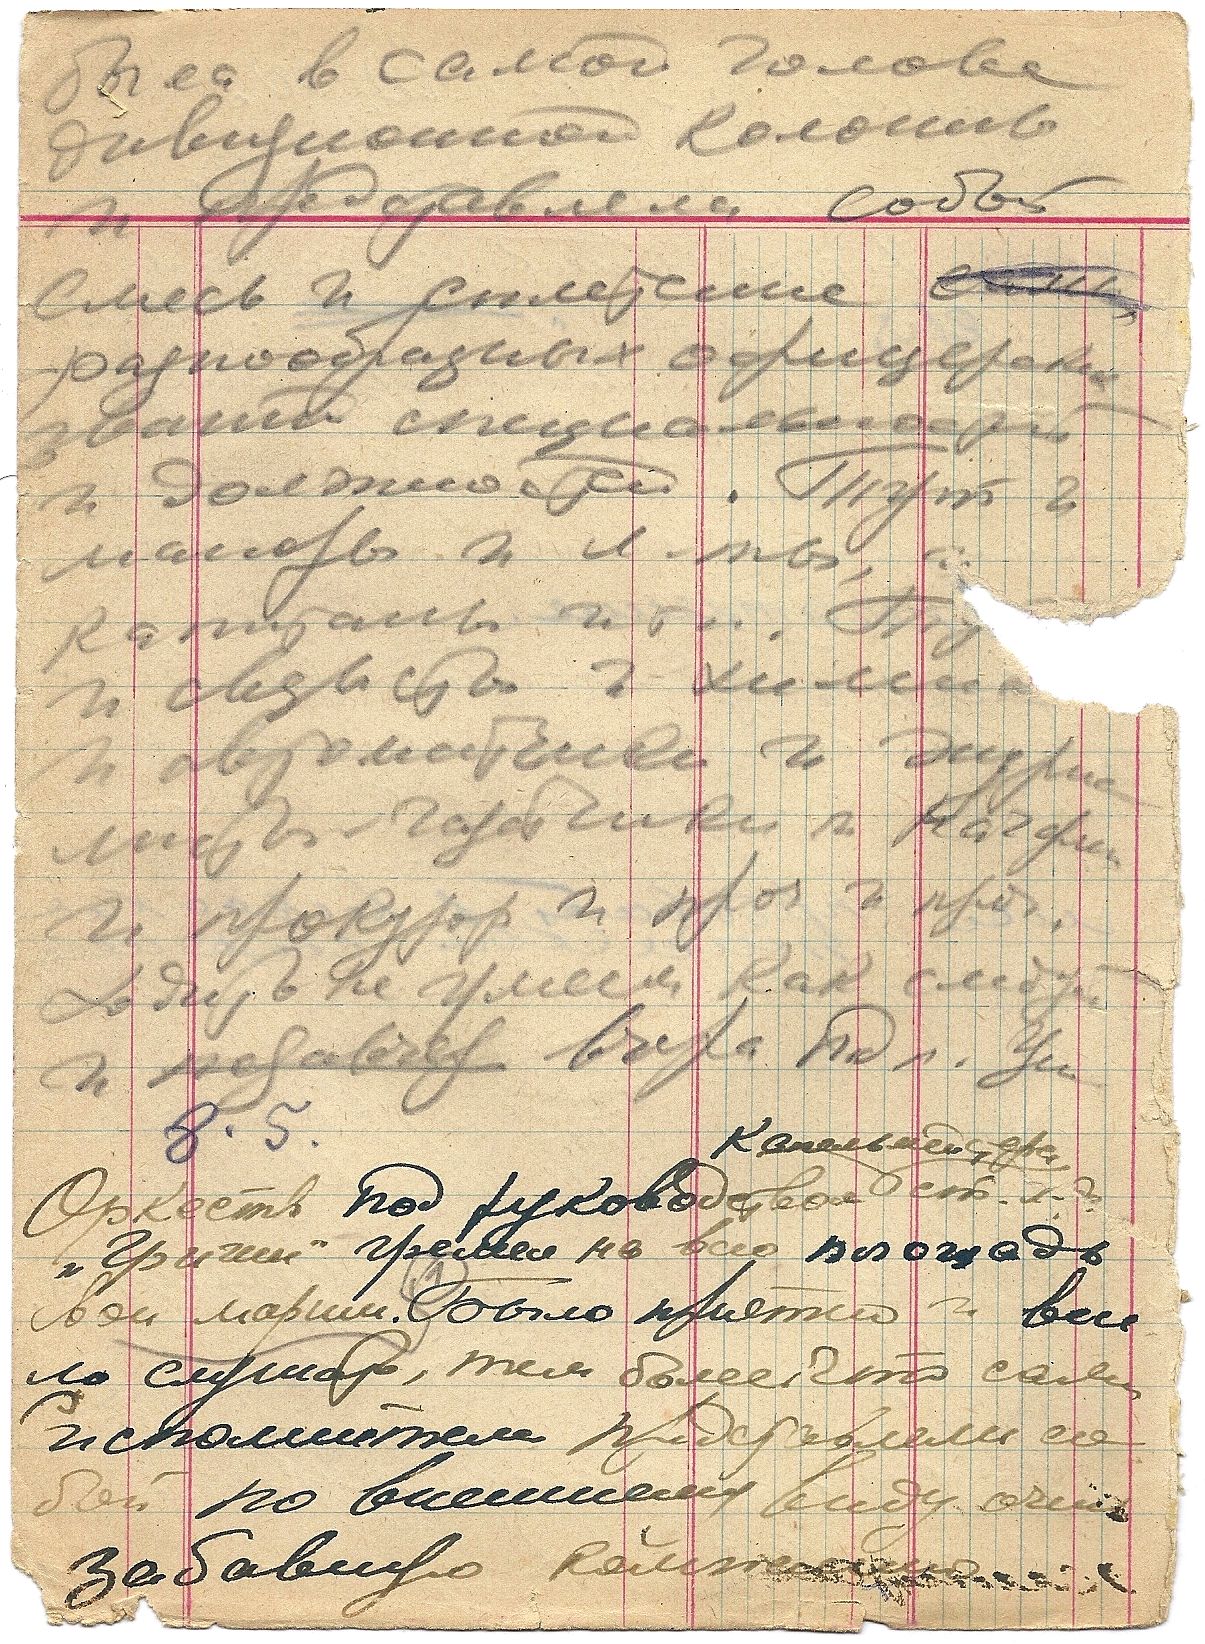 была в самой голове
дивизионной колонны
и представляла собой
смесь и сплетение
разнообразных офицерских
званий специальностей
и должностей. Тут и
майоры и л-ты, и
капитаны и т.п. Тут
и связисты и химики
и автоматчики и журна
листы-газетчики и начфин
и прокурор и проч и проч.
Ходить не умеем как следует
и вчера под г.
8. 5.
капельмейстера
Оркестр под руководством ст. л-та
"Гриши" гремел на всю площадь
вои марши. (1) Было приятно и весе
ло слушать, тем более что сами
исполнители представляли со
бой по внешнему виду очень
забавную компанию